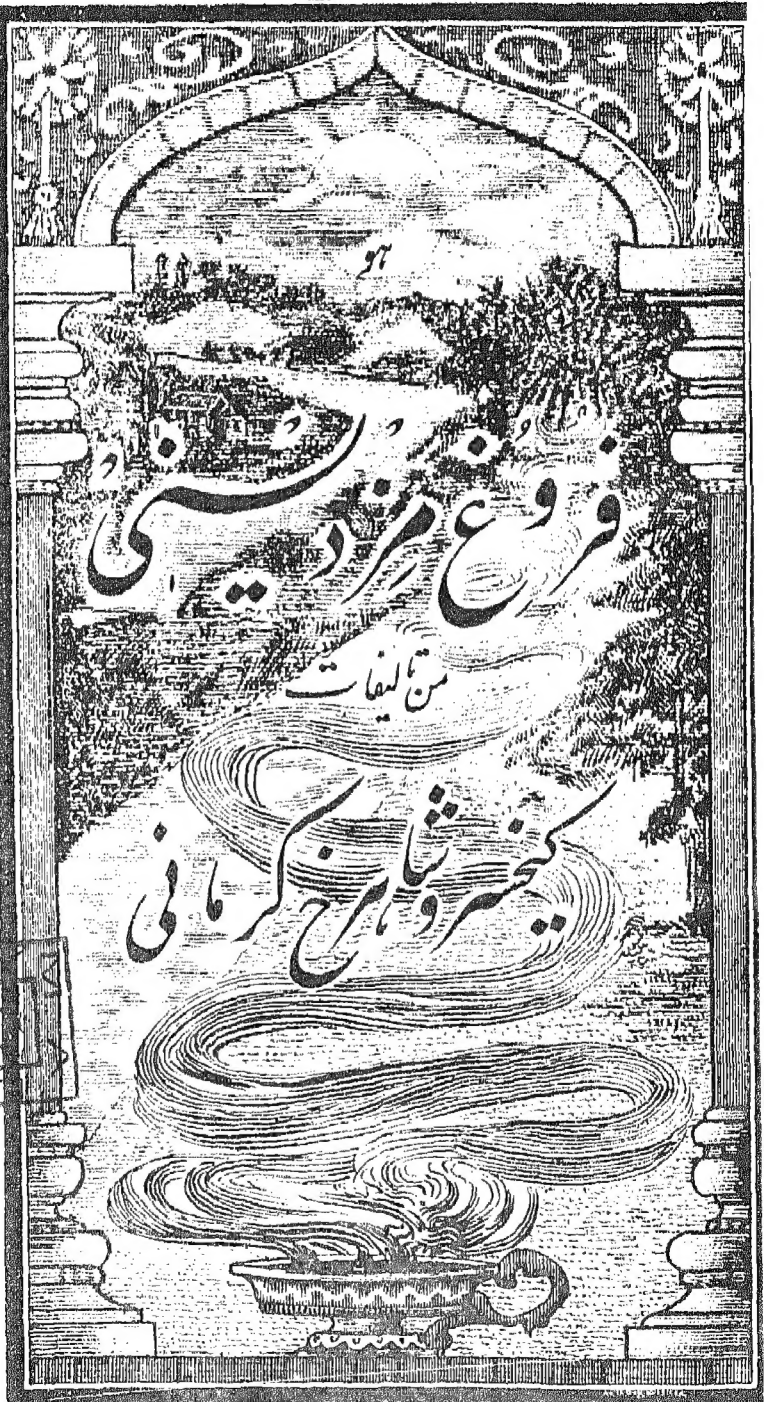 هو
فروغ مزدیسنی
من تالیفات
کیخسرو شاهرخ کرمانی